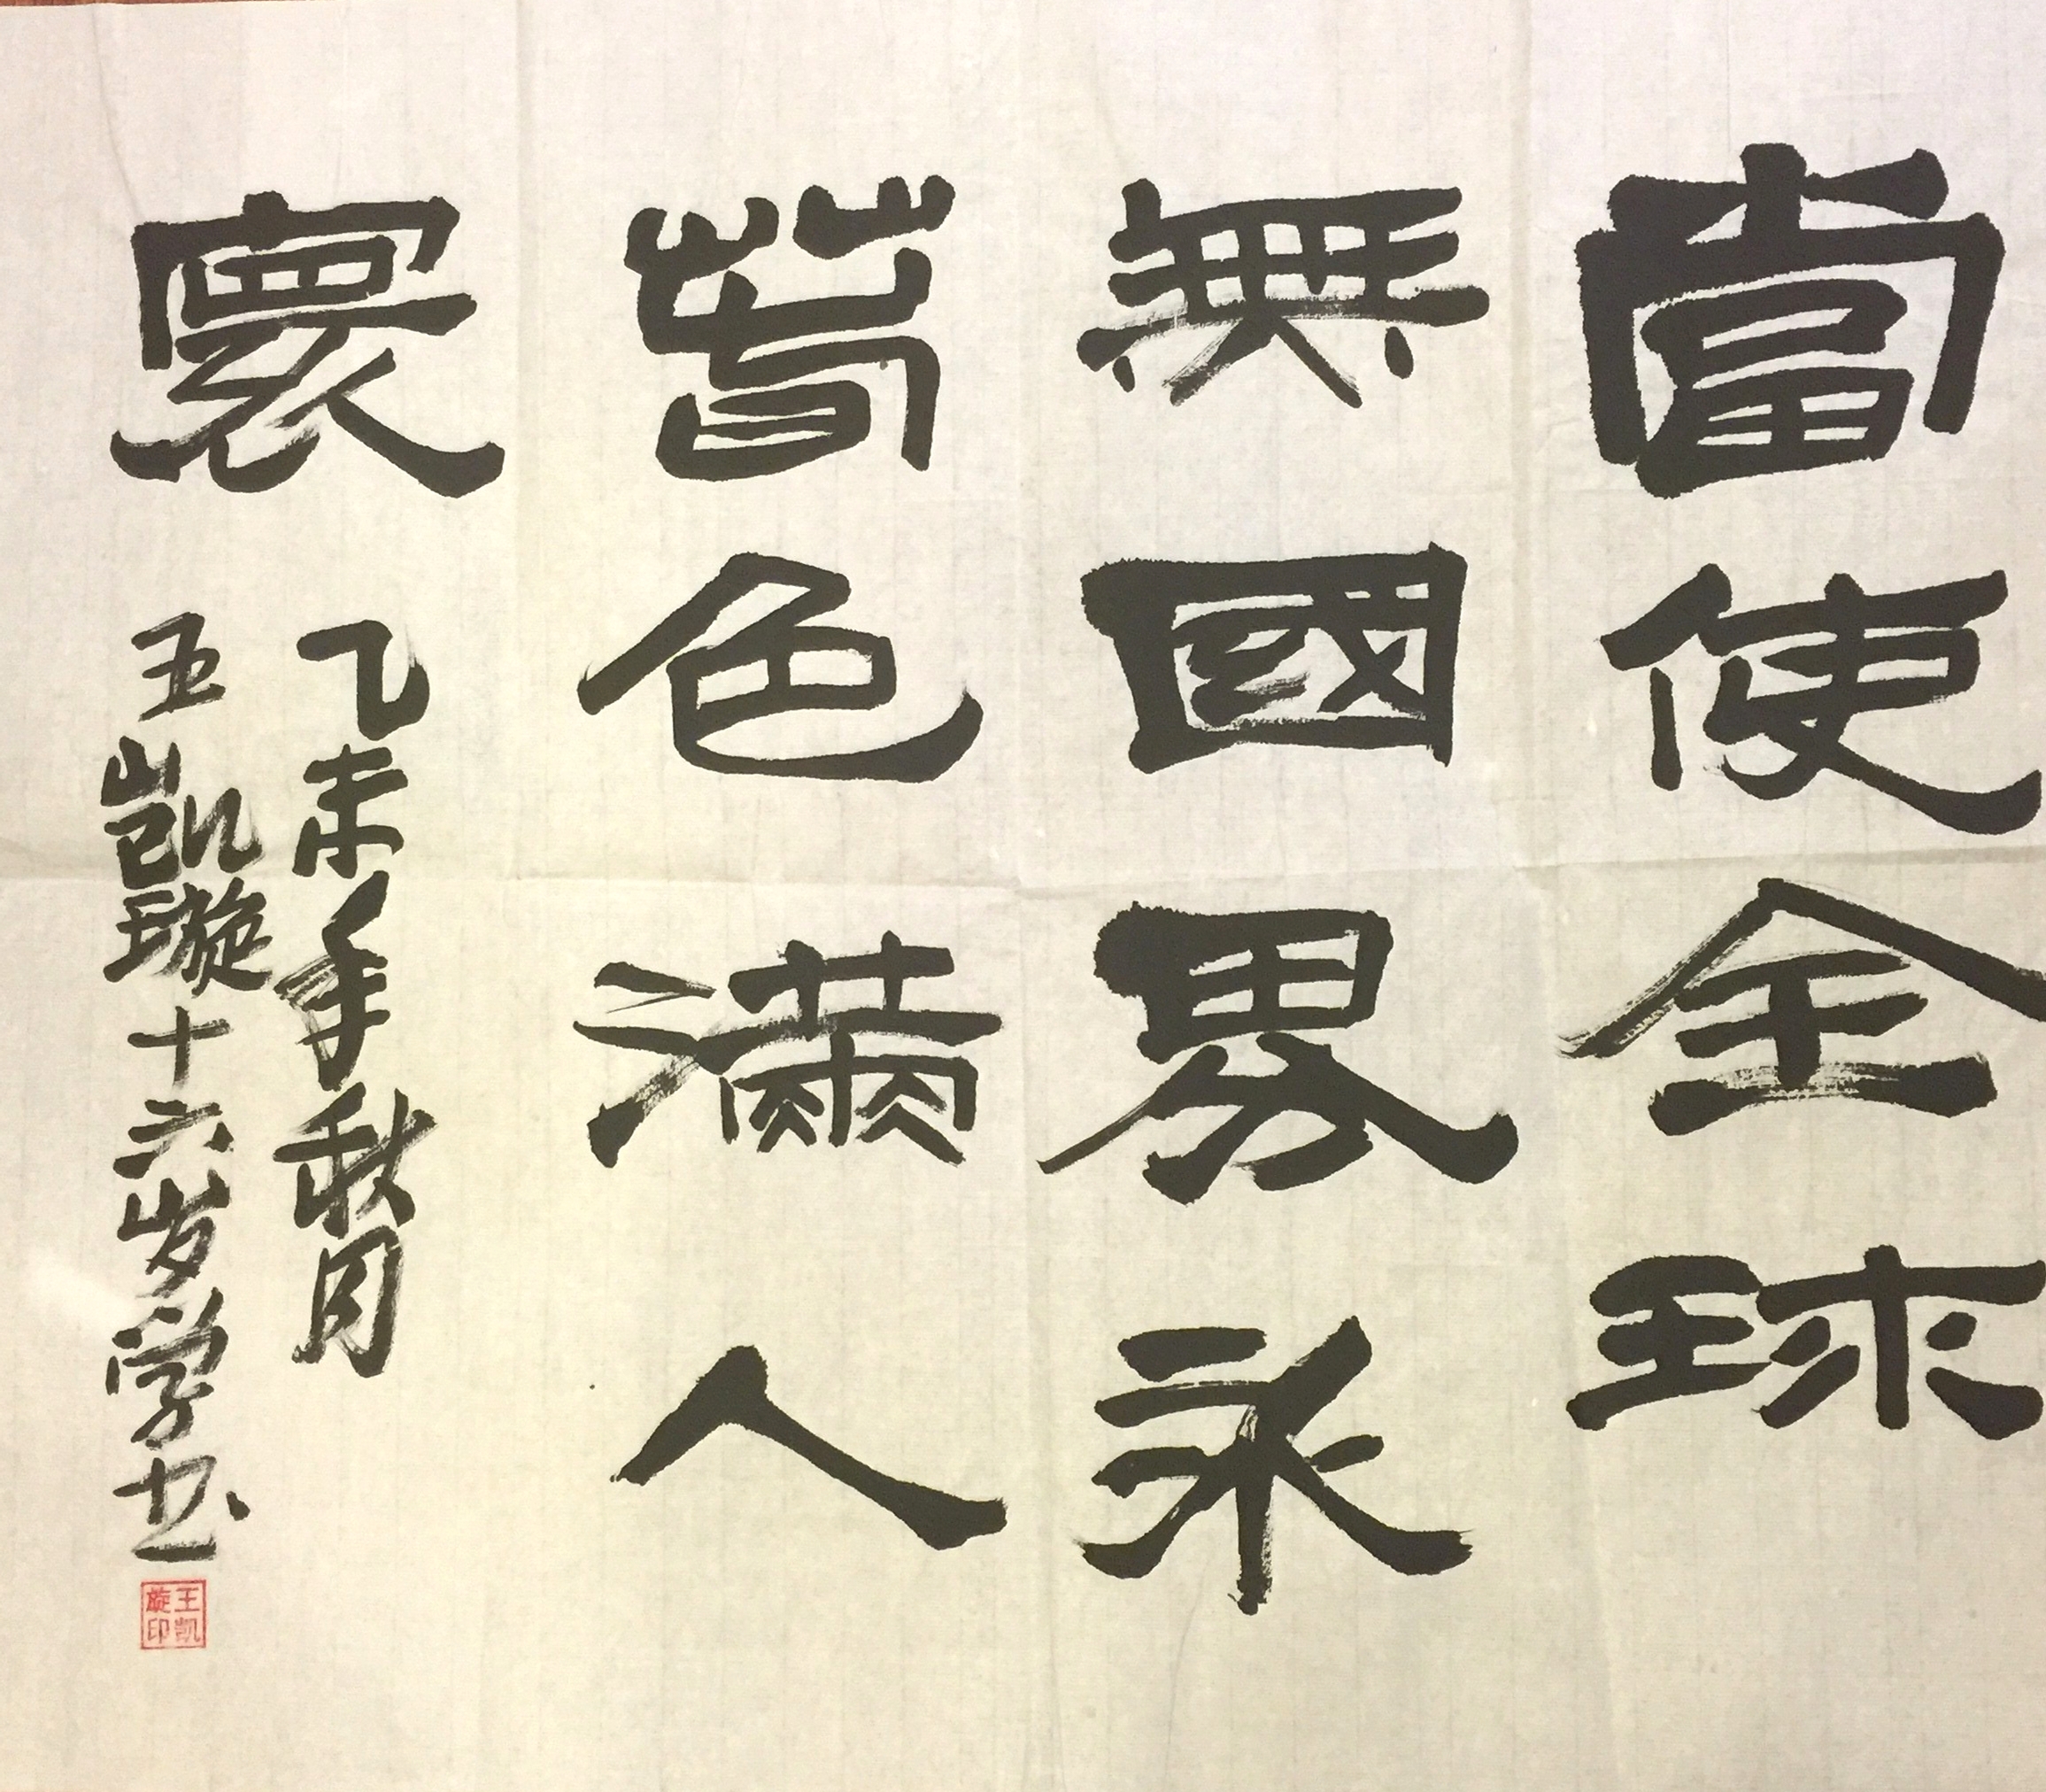 當使全球
無國界永
葆春色滿人
寰
乙未年秋月
王凱璇十六岁学书
王凯
璇印